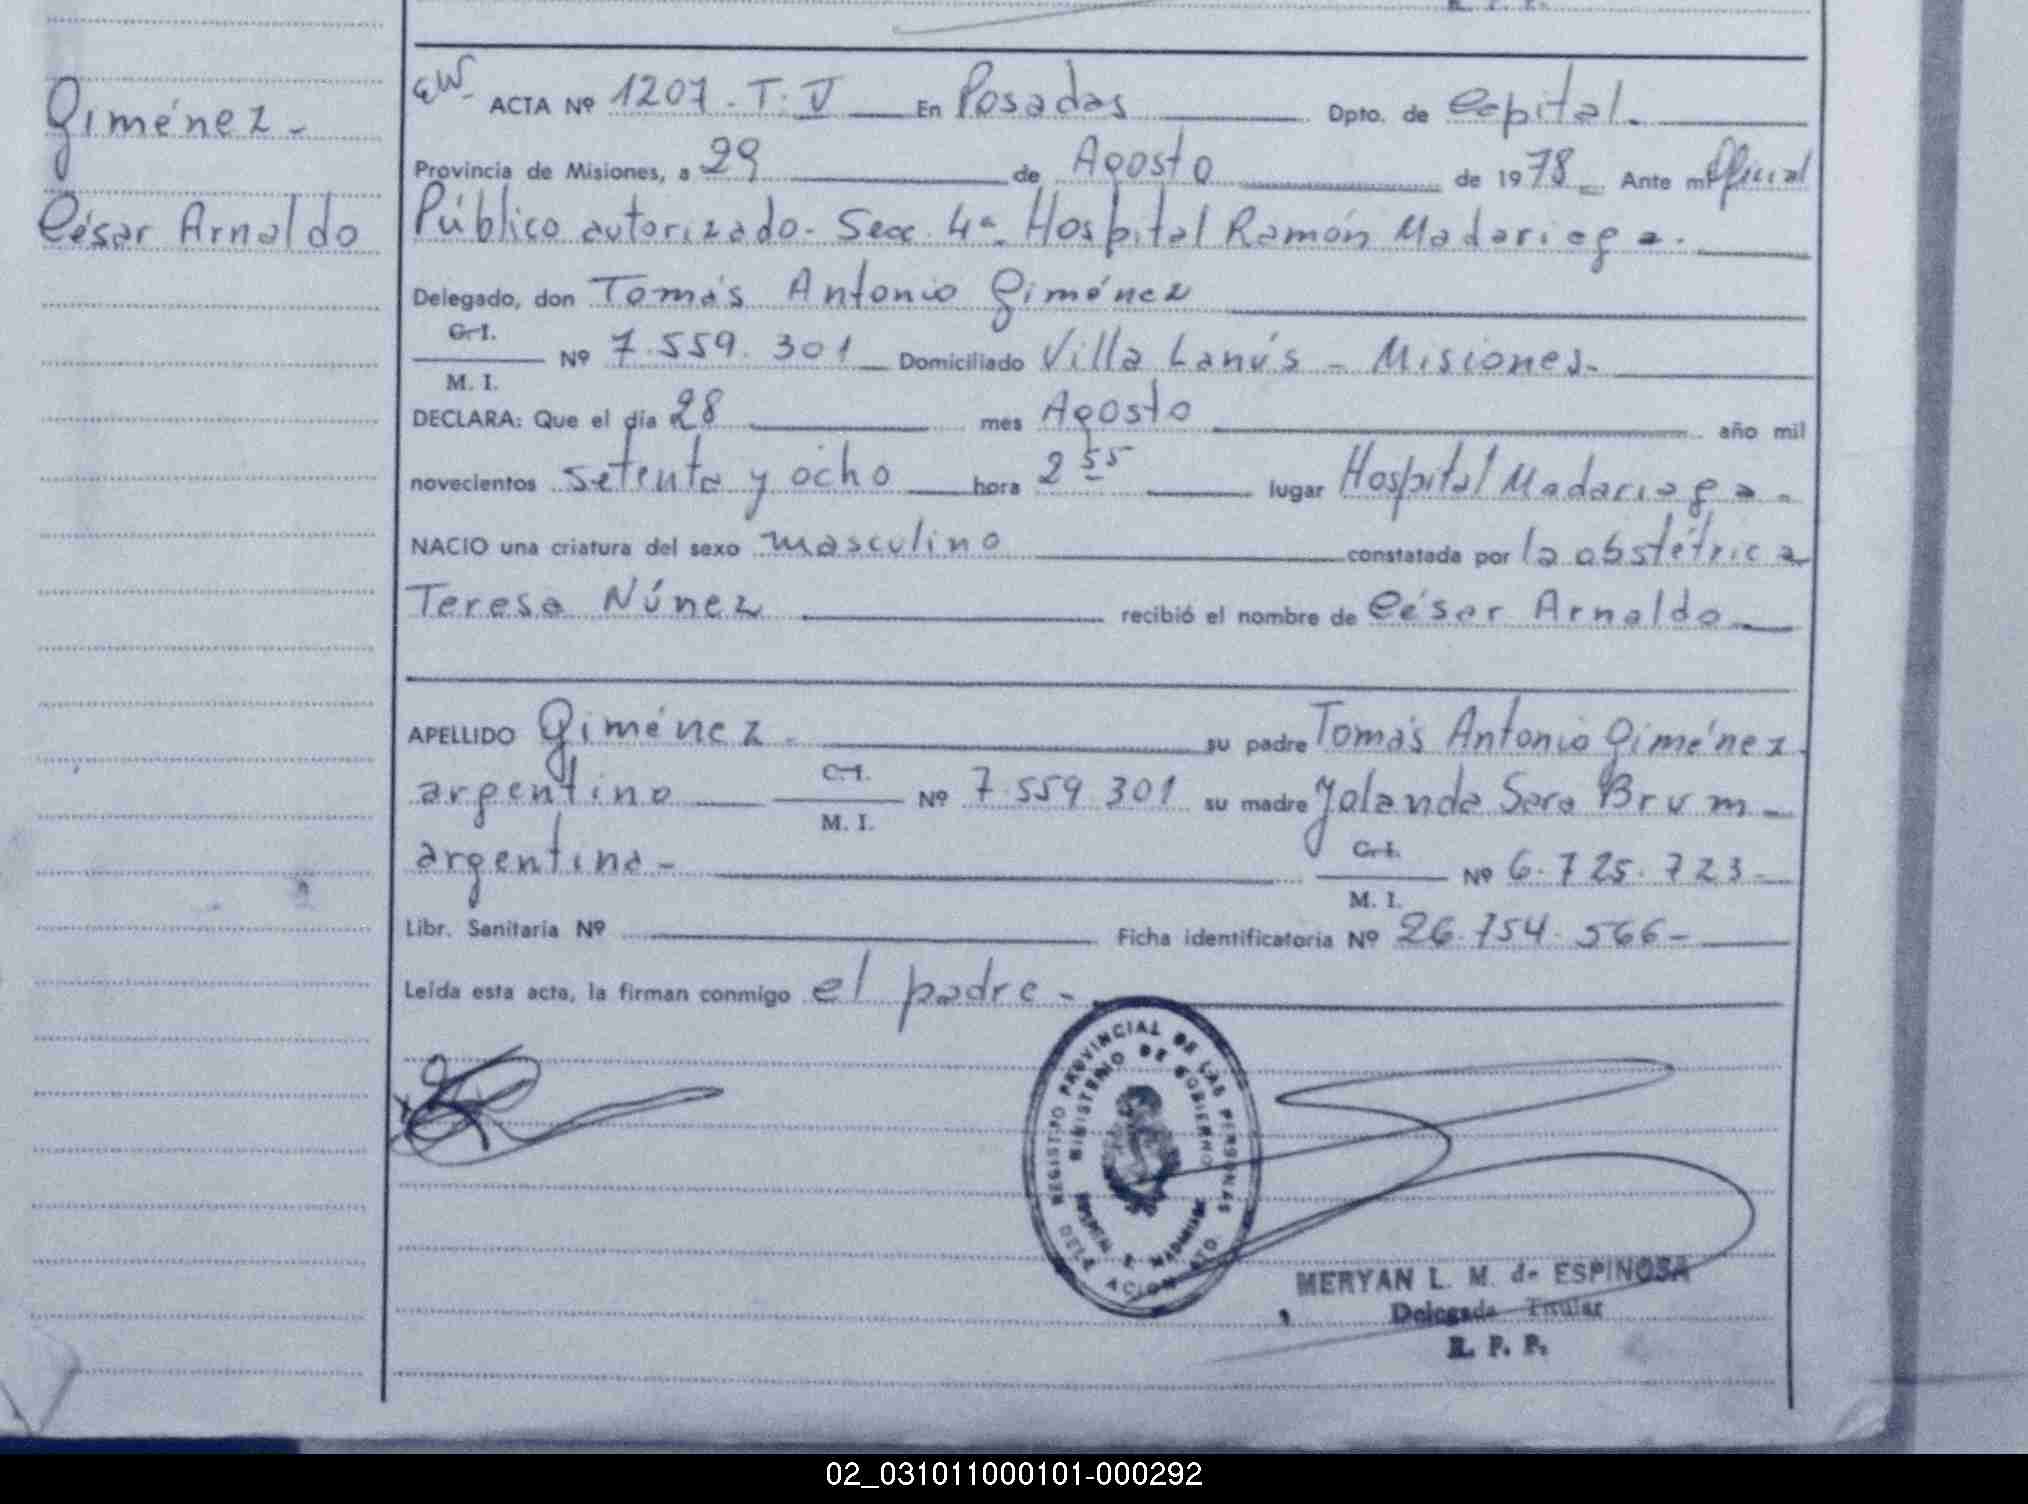 Giménez -
César Arnaldo
ACTA Nº 1207 - T: V En Posadas Dpto. de Capital.
Provincia de Misiones, a 29 de Agosto de 1978 Ante mí Oficial
Público autorizado. Secc. 4ª. Hospital Ramón Madariaga.
Delegado, don Tomás Antonio Giménez
C. I.
M. I. Nº 7.559.301 Domiciliado Villa Lanús - Misiones.
DECLARA: Que el día 28 mes Agosto año mil
novecientos setenta y ocho hora 2 55 lugar Hospital Madariaga.
NACIO una criatura del sexo masculino constatada por la obstétrica
Teresa Núnez recibió el nombre de César Arnaldo
APELLIDO Giménez - su padre Tomás Antonio Giménez.
argentino C. I.
M. I. Nº 7.559 301 su madre Yolanda Sara Brum -
argentina - C. I.
M. I. Nº 6.725.723 -
Libr. Sanitaria Nº Ficha identificatoria Nº 26.754.566 -
Leída esta acta, la firman conmigo el padre -
REGISTRO PROVINCIAL DE LAS PERSONAS
MINISTERIO DE GOBIERNO
MERYAN L. M. de ESPINOSA
Delegada Titular
R. P. P.
02_031011000101-000292